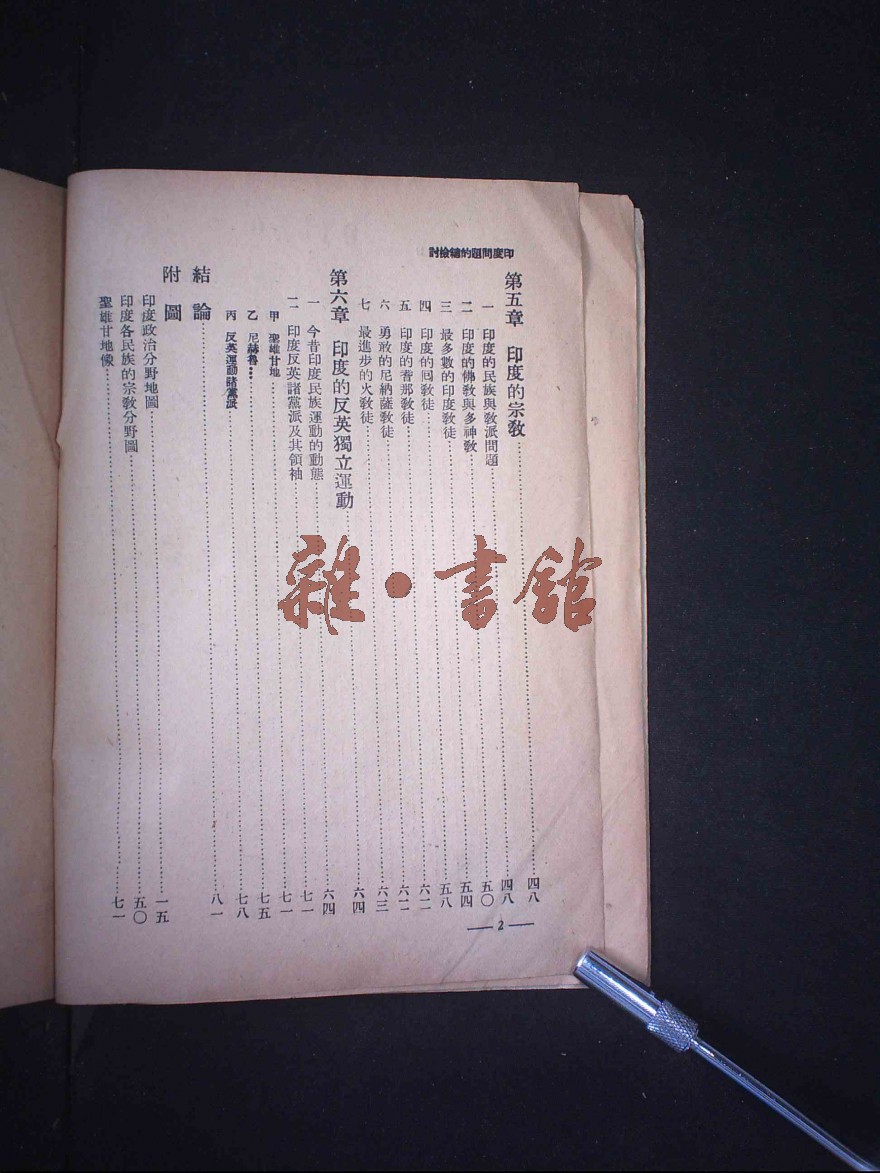 印度問題的總檢討
第五章 印度的宗教⋯⋯四八
一 印度的民族與教派問題⋯⋯四八
二 印度的佛教與多神教⋯⋯五〇
三 最多數的印度教徒⋯⋯五四
四 印度的回教徒⋯⋯五八
五 印度的耆那教徒⋯⋯六二
六 勇敢的尼納薩教徒⋯⋯六二
七 最進步的火教徒⋯⋯六三
第六章 印度的反英獨立運動⋯⋯六四
一 今昔印度民族運動的動態⋯⋯六四
二 印度反英諸黨派及其領袖⋯⋯七一
甲 聖雄甘地⋯⋯七一
乙 尼赫魯⋯⋯七五
丙 反英運動諸黨派⋯⋯七八
結論⋯⋯八一
附圖
印度政治分野地圖⋯⋯一五
印度各民族的宗教分野圖⋯⋯五〇
聖雄甘地像⋯⋯七一
— 2 —
雜·書館